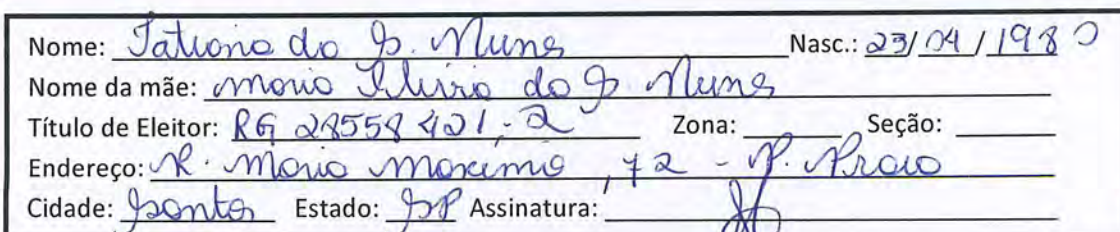 Nome: Tatiana da S. Nunes Nasc.: 23/04/1980
Nome da mãe: Maria Silvia da S Nunes
Título de Eleitor: RG 28558421-2 Zona: Seção:
Endereço: R. Maria Maximo, 72 - P. Praia
Cidade: Santos Estado: SP Assinatura: